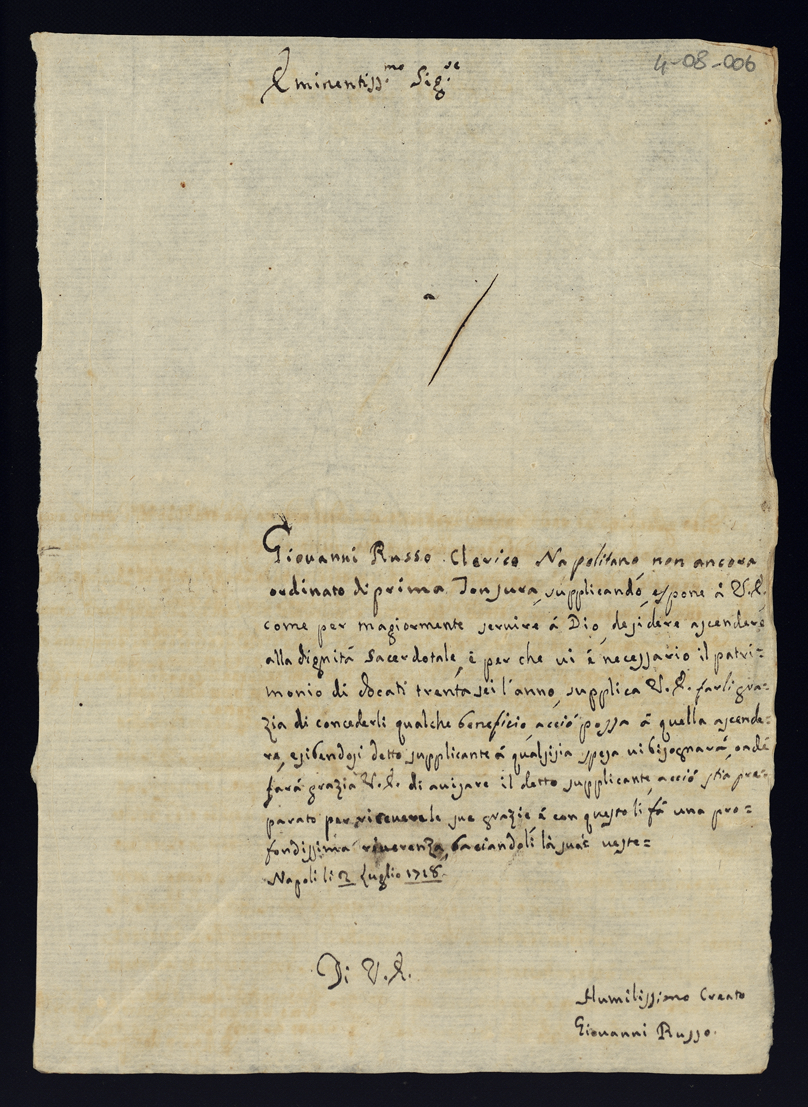 4-08-006
Eminentiss.mo Sig.re
Giovanni Russo Clerico Napolitano, non ancora
ordinato di prima Tonsura, supplicando, espone á V.E.
come per magiormente servire á Dio, desidera ascendere
alla dignitá Sacerdotale, è per che vi é necessario il patri=
monio di docati trenta sei l'anno, supplica V.E. farli gra=
zia di concederli qualche beneficio, acció possa á quella ascende=
re, esibendosi detto supplicante á qualsisia spesa vi bisognará, onde
fará grazia V.E. di avisare il detto supplicante, acció stia pre=
parato per ricevere le sue grazie é con questo li fá una pro=
fondissima riverenza, baciandoli la sua veste=
Napoli li 2 Luglio 1718.
Di V.E.
Humilissimo Creato
Giovanni Russo.